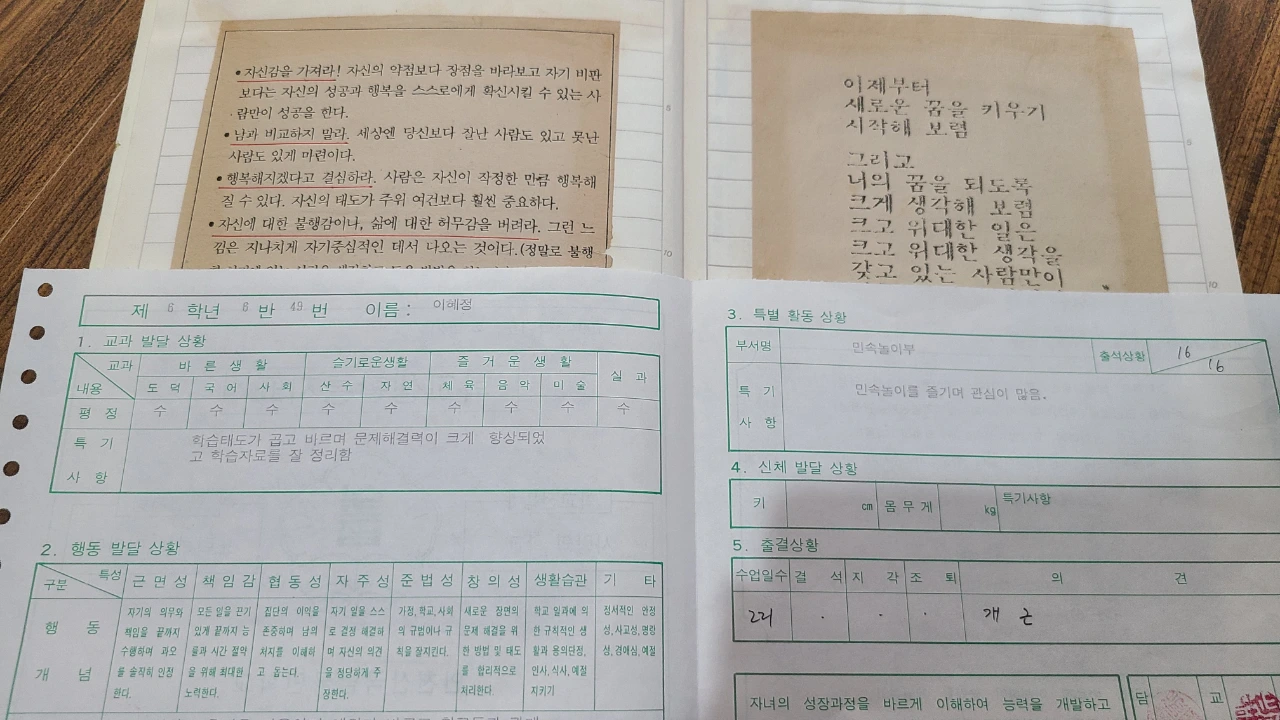 • 자신감을 가져라! 자신의 약점보다 장점을 바라보고 자기 비판
보다는 자신의 성공과 행복을 스스로에게 확신시킬 수 있는 사
람만이 성공을 한다.
• 남과 비교하지 말라. 세상엔 당신보다 잘난 사람도 있고 못난
사람도 있게 마련이다.
• 행복해지겠다고 결심하라. 사람은 자신이 작정한 만큼 행복해
질 수 있다. 자신의 태도가 주위 여건보다 훨씬 중요하다.
• 자신에 대한 불행감이나, 삶에 대한 허무감을 버려라. 그런 느
낌은 지나치게 자기중심적인 데서 나오는 것이다.(정말로 불행
이제부터
새로운 꿈을 키우기
시작해 보렴
그리고
너의 꿈을 되도록
크게 생각해 보렴
크고 위대한 일은
크고 위대한 생각을
갖고 있는 사람만이
5
10
5
10
제 6 학년 6 반 49 번 이름 : 이혜정
1. 교과 발달 상황
교과 바른생활 슬기로운생활 즐거운생활 실과
내용 도덕 국어 사회 산수 자연 체육 음악 미술
평정 수 수 수 수 수 수 수 수 수
특기 학습태도가 곱고 바르며 문제해결력이 크게 향상되었
사항 고 학습자료를 잘 정리함
2. 행동 발달 상황
구분 특성 근면성 책임감 협동성 자주성 준법성 창의성 생활습관 기타
행동 자기의 의무와 모든 일을 끈기 집단의 이익을 자기 일을 스스 가정, 학교, 사회 새로운 장면의 학교 일과에 의 정서적인 안정
책임을 끝까지 있게 끝까지 능 존중하며 남의 로 결정 해결하 의 규범이나 규 문제 해결을 위 한 규칙적인 생 성, 사교성, 명랑
수행하며 과오 률과 시간 절약 처지를 이해하 며 자신의 의견 칙을 잘지킨다. 한 방법 및 태도 활과 용의단정, 성, 경애심, 예절
개념 를 솔직히 인정 을 위해 최대한 고 돕는다. 을 정당하게 주 를 합리적으로 인사, 식사, 예절
한다. 노력한다. 장한다. 처리한다. 지키기
3. 특별 활동 상황
부서명 민속놀이부 출석상황 16 16
특기 민속놀이를 즐기며 관심이 많음.
사항
4. 신체 발달 상황
키 cm 몸무게 kg 특기사항
5. 출결상황
수업일수 결석 지각 조퇴 의견
221 · · · 개근
자녀의 성장과정을 바르게 이해하여 능력을 개발하고
담 교